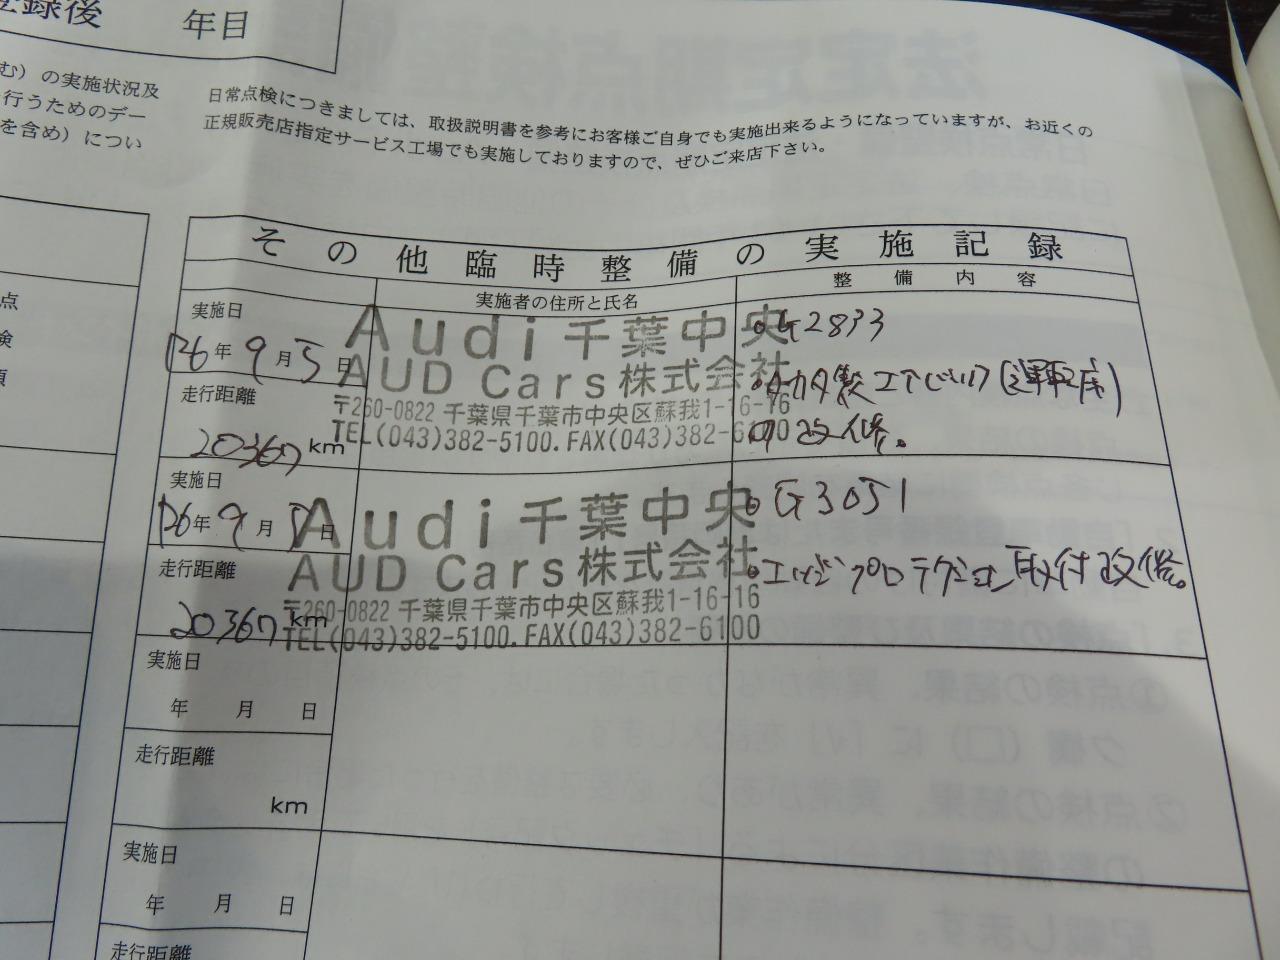 登録後 年目
む）の実施状況及
行うためのデー
を含め）につい
日常点検につきましては、取扱説明書を参考にお客様ご自身でも実施出来るようになっていますが、お近くの
正規販売店指定サービス工場でも実施しておりますので、ぜひご来店下さい。
点
検
その他臨時整備の実施記録
実施者の住所と氏名
整備内容
実施日
年 9月5日
走行距離
20367 km
Audi千葉中央
AUD Cars株式会社
〒260-0822 千葉県千葉市中央区蘇我1-16-16
TEL(043)382-5100. FAX(043)382-6100
G2833
タカタ製エアバッグ(運転席)
の改修。
実施日
年 9月5日
走行距離
20367 km
Audi千葉中央
AUD Cars株式会社
〒260-0822 千葉県千葉市中央区蘇我1-16-16
TEL(043)382-5100. FAX(043)382-6100
G3051
エッジプロテクション取付改修。
実施日
年 月 日
走行距離
km
実施日
年 月 日
走行距離